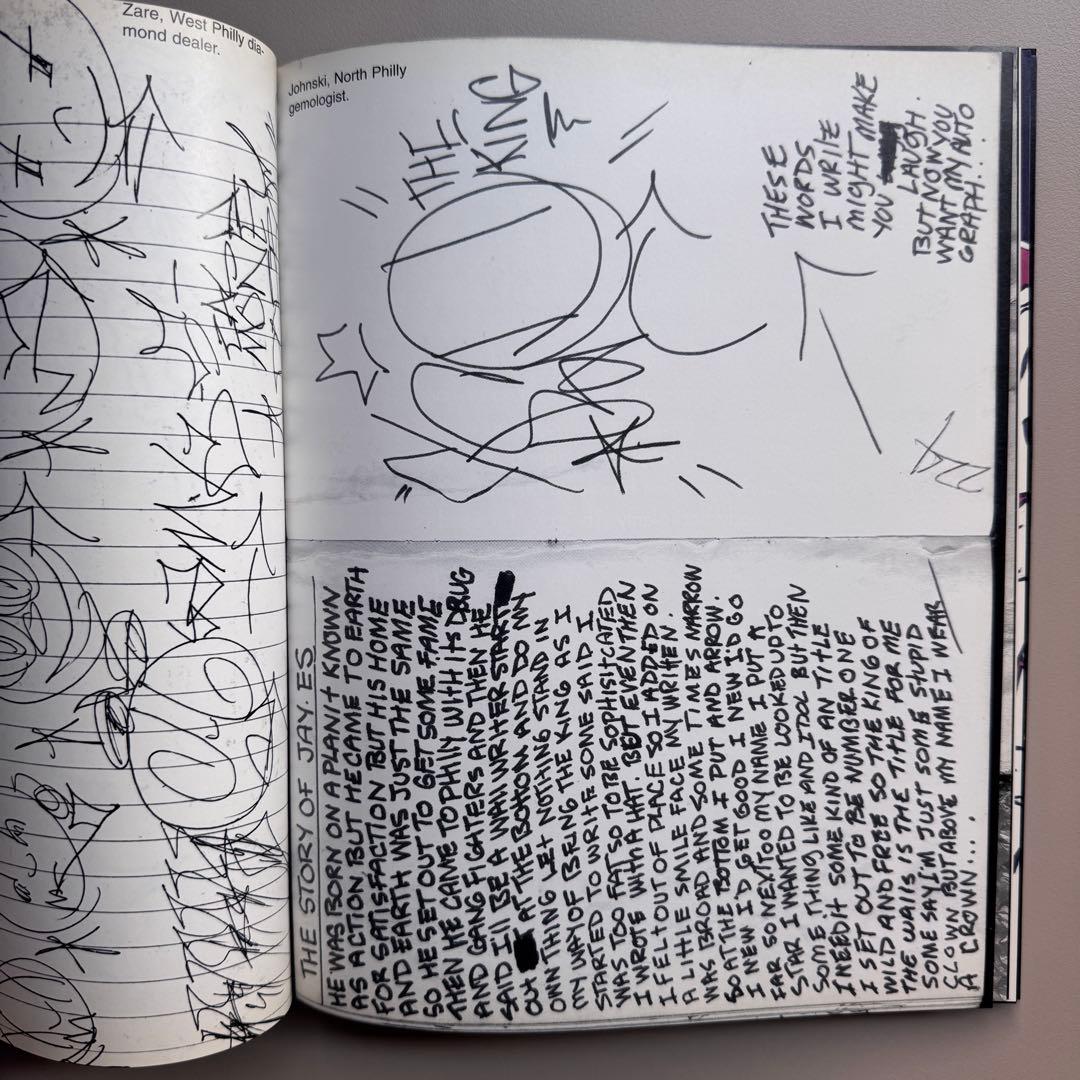 Zare, West Philly dia-
mond dealer.
Johnski, North Philly
gemologist.
THE
KING
THESE
WORDS
I WRITE
MIGHT MAKE
YOU
LAUGH.
BUT NOW YOU
WANT MY AUTO
GRAPH...
THE STORY OF JAY. ES
HE WAS BORN ON A PLANIT KNOWN
AS ACTION, BUT HE CAME TO EARTH
FOR SATISFACTION BUT HIS HOME
AND EARTH WAS JUST THE SAME
SO HE SET OUT TO GET SOME FAME
THEN HE CAME TO PHILLY WITH ITS DRUG
AND GANG FIGHTERS AND THEN HE
SAID I'LL BE A WALL WRITHER START
OUT AT THE BOTTOM AND DO MY
OWN THING LET NOTHING STAND IN
MY WAY OF BEING THE KING AS I
STARTED TO WRITE SOME SAID I
WAS TOO FAT SO TO BE SOPHISTICATED
I WROTE WITH A HAT. BET EVEN THEN
I FELT OUT OF PLACE SO I ADDED ON
A LITTLE SMILE FACE MY WRITTEN.
WAS BROAD AND SOME TIMES NARROW
SO AT THE BOTTOM I PUT AND ARROW.
I NEW I'D GET GOOD I NEW ID GO
FAR SO NEXT TOO MY NAME I PUT A
STAR I WANTED TO BE LOOKED UP TO
SOME THING LIKE AND IDOL BUT THEN
I NEED IT SOME KIND OF AN TITLE
I SET OUT TO BE NUMBER ONE
WILD AND FREE SO THE KING OF
THE WALLS IS THE TITLE FOR ME
SOME SAY I'M JUST SOME STUPID
CLOWN BUT ABOVE MY NAME I WEAR
A CROWN...